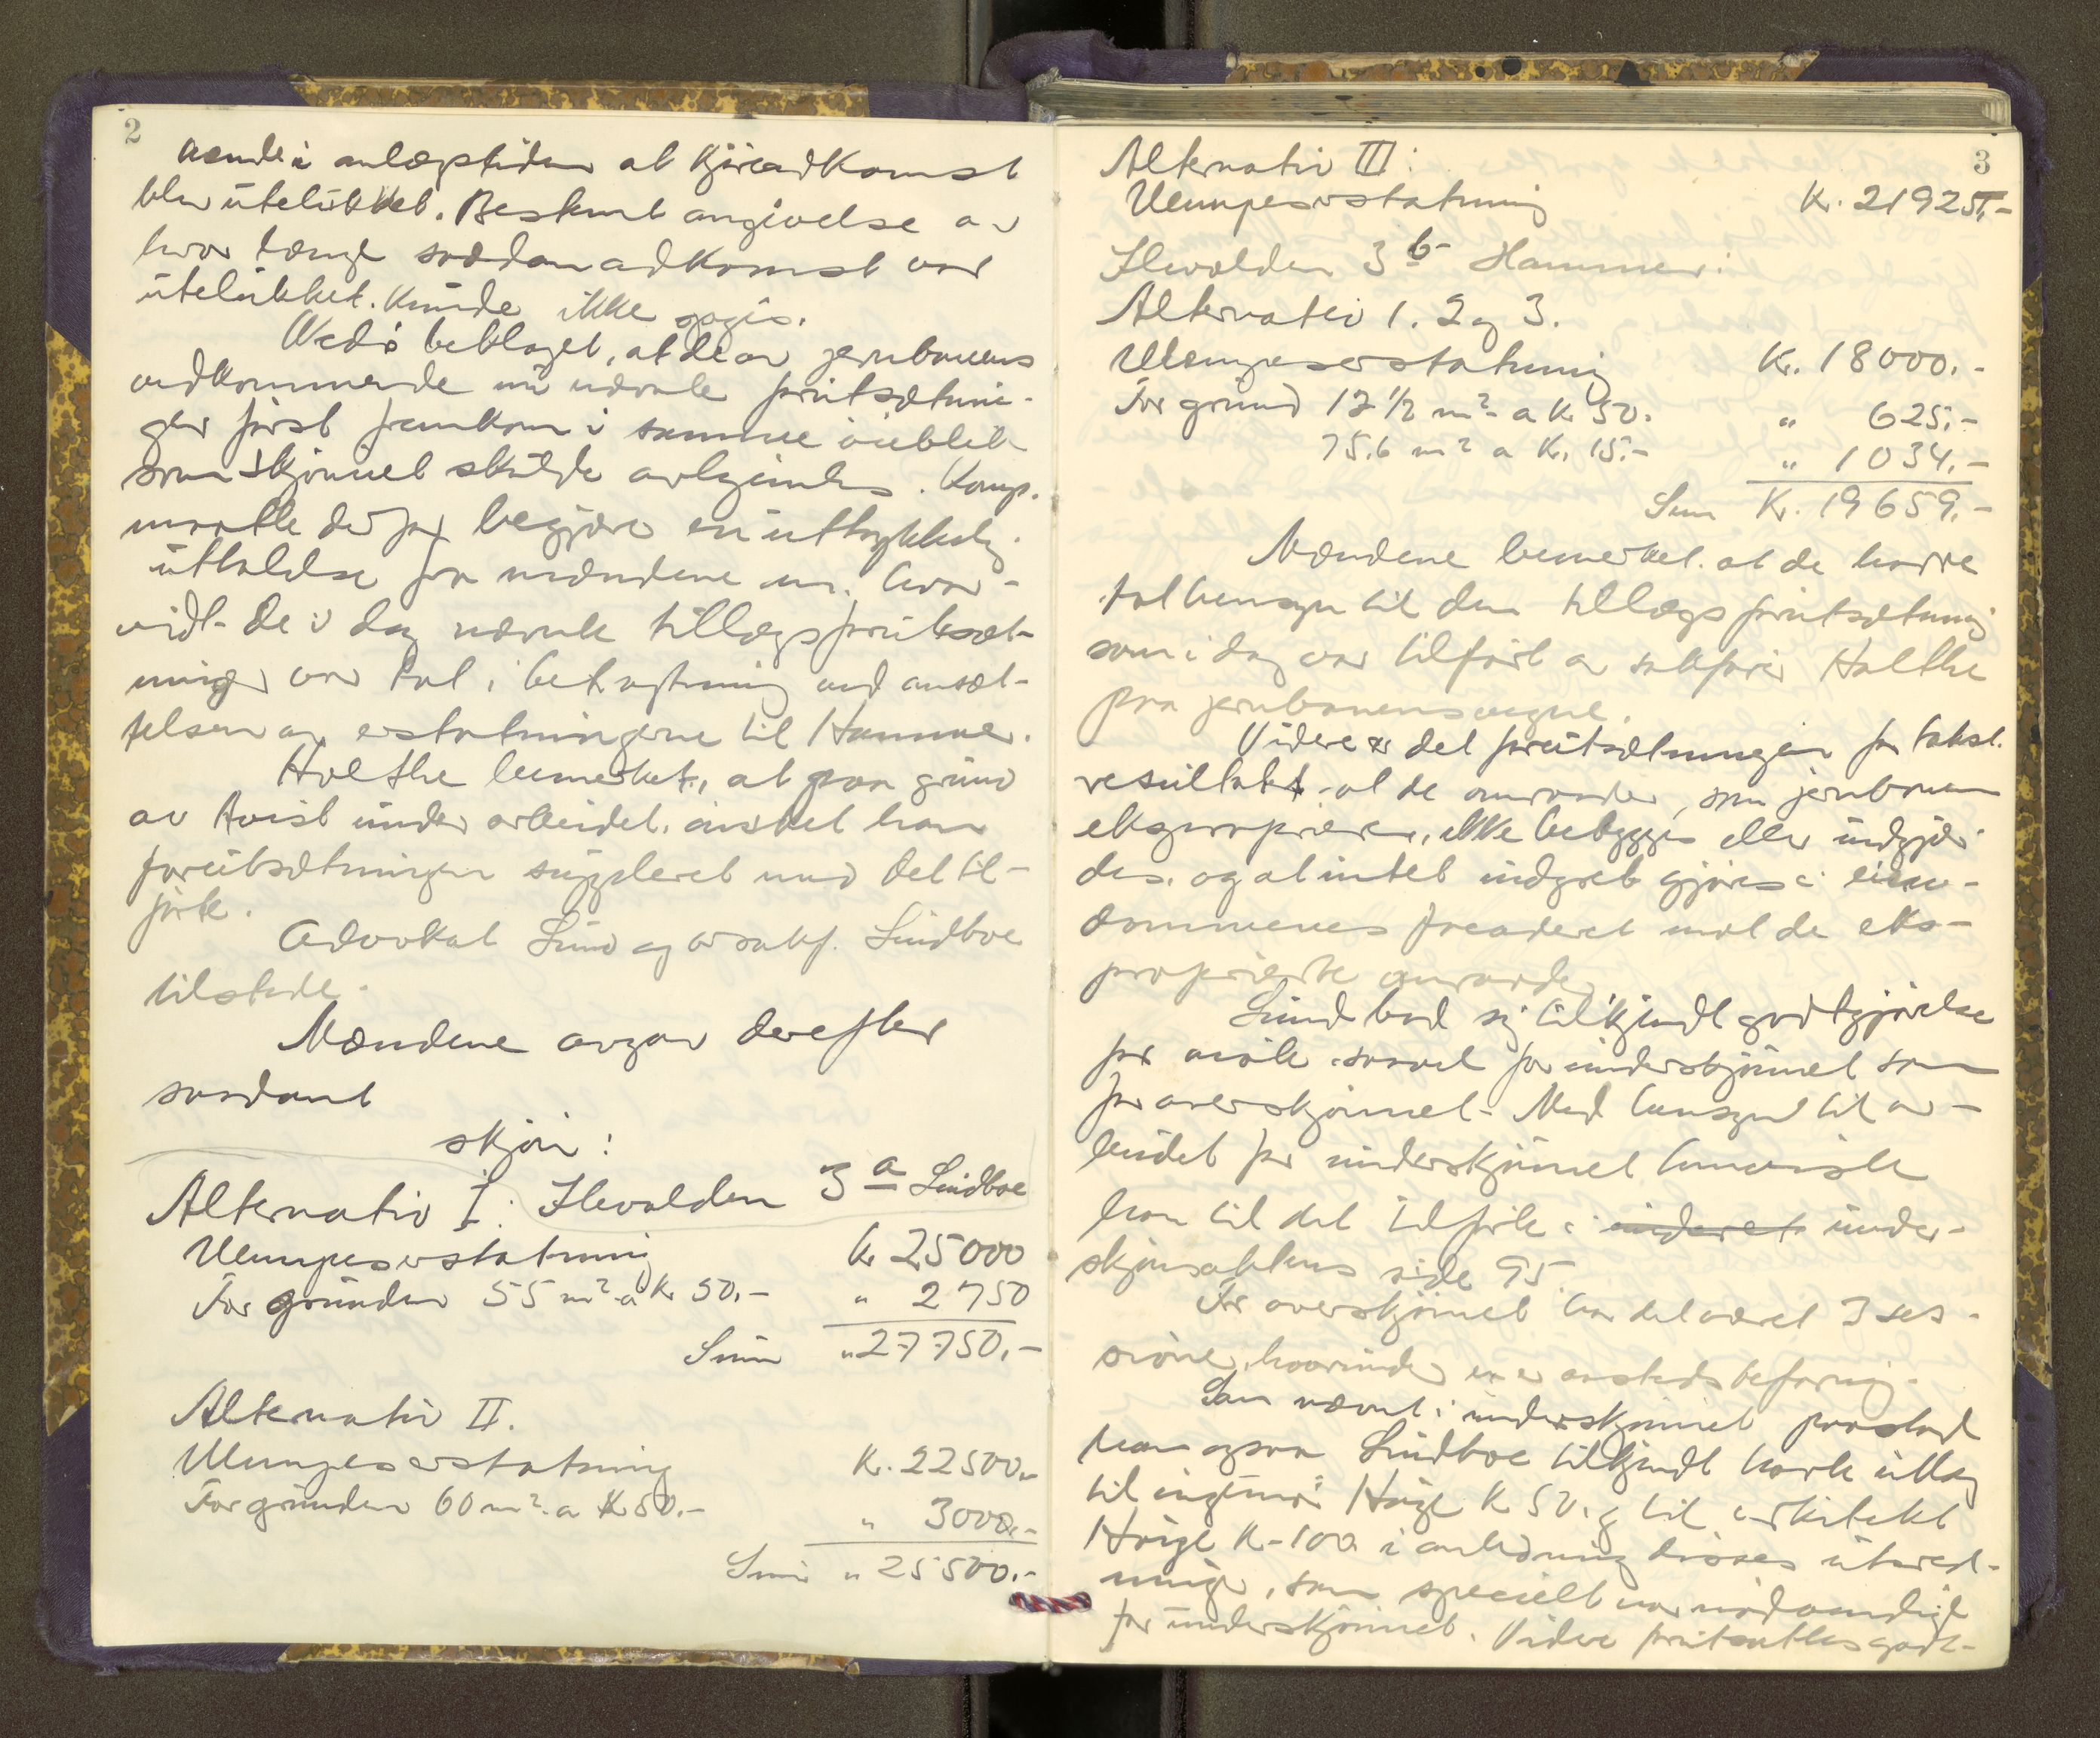 2
vende i anlægstiden at kjøreadkomst
blev utelukket. Bestemt angivelse av
hvor længe saadan adkomst var
utelukket kunde ikke sagis.
beklaget, at de av jernbanens
vedkommende nu nævnte forutsætnin-
ger først fremkom i samme øieblik
som skjønnet skulde avhjemles.
maatte derfor begjære en uttrykkelig
uttalelse fra mændene om hvor-
vidt de i dag nævnte tillægsforutsæt-
ninger var tat i betragtning ved ansæt-
telsen av erstatningerne til Hammer.
Holthe bemerket, at paa grund
av tvist under arbeidet, ønsket han
forutsætningen suppleret med det til-
førte.
Advokat Lund og o.r.sakf. Lindboe
tilstede.
Mændene avgav derefter
saadant
skjøn:
Alternativ I: Ilevolden 3 a Lindboe
Ulempeserstatning Kr 25000
For grunden 55 m² a Kr 50.- " 2750
Sum " 27750.-
Alternativ II.
Ulempeserstatning Kr. 22500.-
For grunden 60 m² a Kr 50.- " 3000.-
Sum " 25500.-
3
Alternativ III:
Ulempeserstatning Kr. 21925.-
Ilevolden 3 b Hammer:
Alternativ 1. 2 og 3.
Ulempeserstatning Kr. 18000.-
For grund 12 1/2 m² a Kr 50. " 625.-
75.6 m² a Kr. 15.- " 1034.-
Sum Kr. 19659.-
Mændene bemerket at de havde
tat hensyn til den tillægsforutsætning
som i dag var tilført av sakfører Holthe
paa jernbanens vegne.
Videre er det forutsætningen for takst-
resultatet at de omraader, som jernbanen
eksproprierer, ikke bebygges eller indgjær-
des, og at intet indgreb gjøres i eien-
dommenes facaderet mot de eks-
proprierte omraader.
Lund bad sig tilkjendt godtgjørelse
for møte saavel for underskjønnet som
for overskjønnet. Med hensyn til ar-
beidet for underskjønnet henviste
han til det tilførte i underet under-
skjønsaktens side 95.
For overskjønnet har det været 3 ses-
sioner, hvorunder en er aastedsbefaring.
Som nævnt i underskjønnet paastod
han ogsaa Lindboe tilkjendt havte utlæg
til ingeniør Høige Kr 50. og til arkitekt
Høige Kr 100 i anledning disses utred-
ninger, som specielt var nødvendige
for underskjønnet. Videre forutsattes godt-